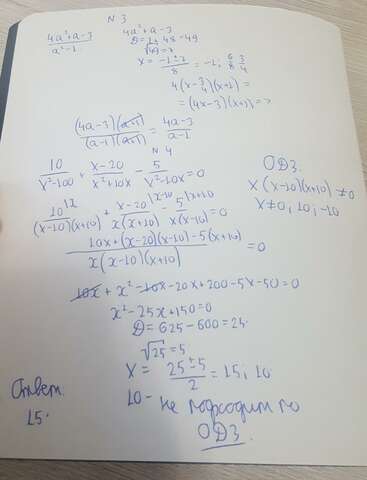 N 3
4a²+a-3 / a²-1
4a²+a-3
D=1+48=49
√49=7
x = (-1±7)/8 = -1; 6/8 3/4
4(x-3/4)(x+1)=
=(4x-3)(x+1)=>
(4a-3)(a+1) / (a-1)(a+1) = (4a-3)/(a-1)
N 4
10/(x²-100) + (x-20)/(x²+10x) - 5/(x²-10x) = 0
ОДЗ.
x(x-10)(x+10)≠0
x≠0; 10; -10
10|x / (x-10)(x+10) + x-20|x-10 / x(x+10) - 5|x+10 / x(x-10) = 0
10x+(x-20)(x-10)-5(x+10) / x(x-10)(x+10) = 0
10x+x²-10x-20x+200-5x-50=0
x²-25x+150=0
D=625-600=25
√25=5
x = (25±5)/2 = 15; 10
10- не подходит по
ОДЗ.
Ответ.
15.